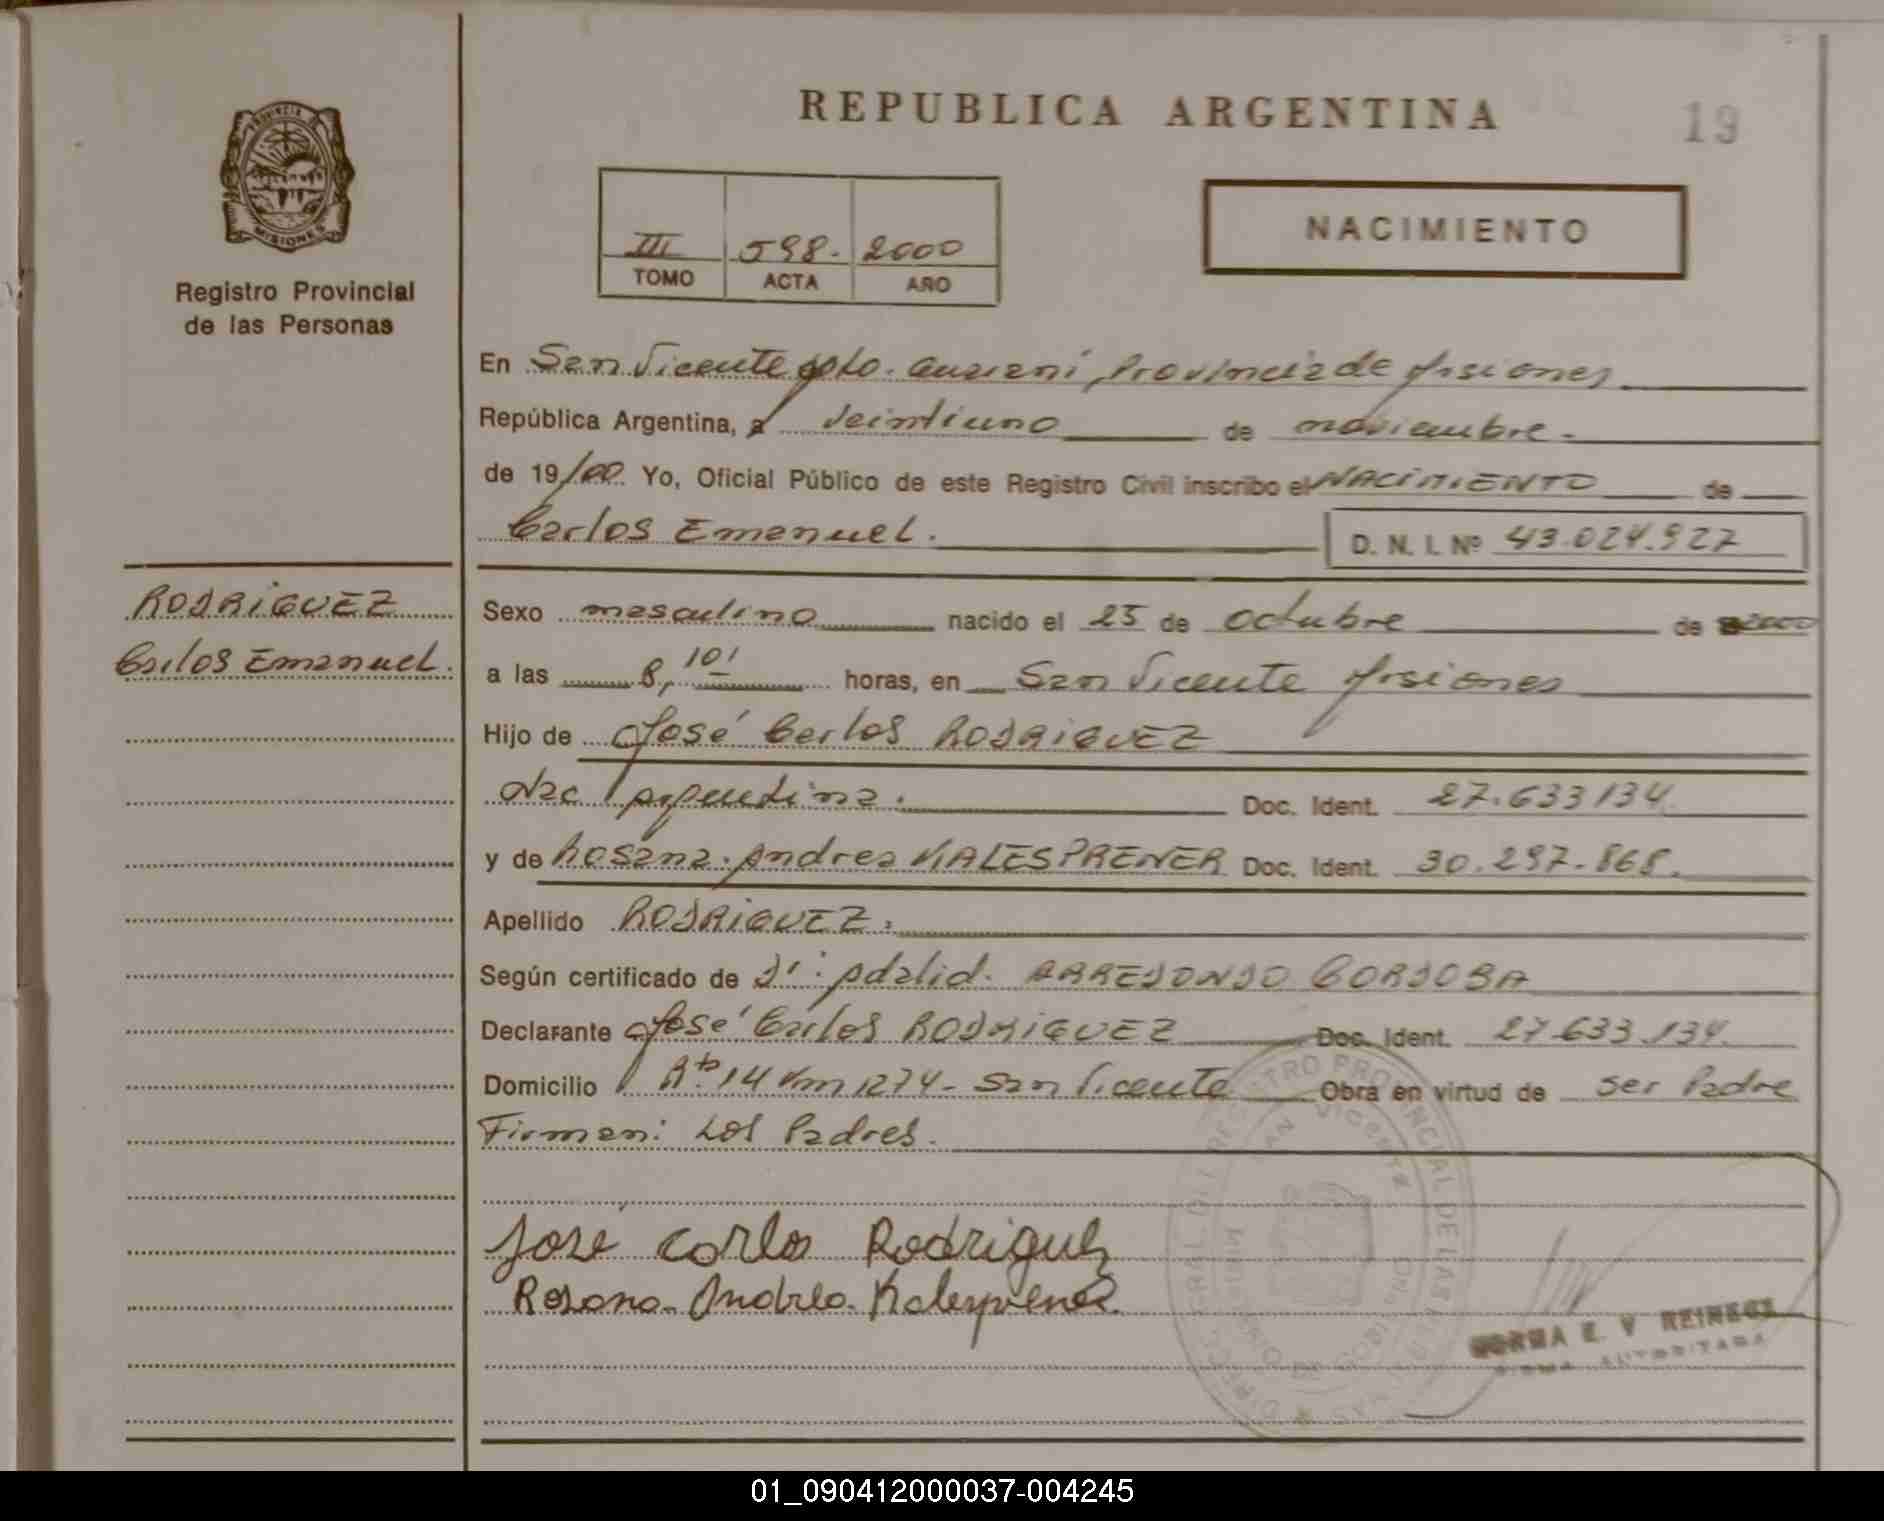 REPUBLICA ARGENTINA
19
PROVINCIA DE
MISIONES
Registro Provincial
de las Personas
III 598. 2000
TOMO ACTA AÑO
NACIMIENTO
En San Vicente Dpto. Guaraní, Provincia de Misiones
República Argentina, a Veintiuno de noviembre.
de 19/00. Yo, Oficial Público de este Registro Civil inscribo el NACIMIENTO de
Carlos Emanuel.
D. N. I. Nº 43.024.927
RODRIGUEZ
Carlos Emanuel.
Sexo masculino nacido el 25 de octubre de 2000
a las 8,10' horas, en San Vicente Misiones
Hijo de José Carlos RODRIGUEZ
Nac Argentina. Doc. Ident. 27.633134.
y de Rosana Andrea KALESPRENER Doc. Ident. 30.297.868.
Apellido RODRIGUEZ.
Según certificado de Dr. Adalid. ARREDONDO CORDOBA
Declarante José Carlos RODRIGUEZ Doc. Ident. 27.633.134.
Domicilio Rta 14 Km 1274 - San Vicente Obra en virtud de ser Padre
Firman: Los Padres.
José Carlo Rodriguez
Rosana Andrea
NORMA E. V REINECK
FIRMA AUTORIZADA
01_090412000037-004245